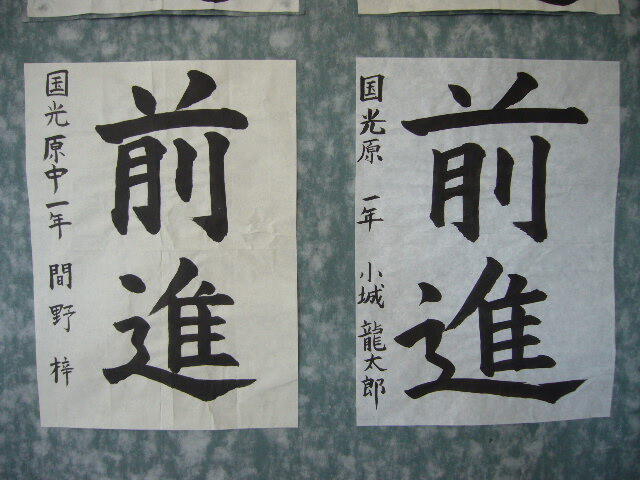 前進
国光原中一年 間野 梓
前進
国光原 一年 小城 龍太郎